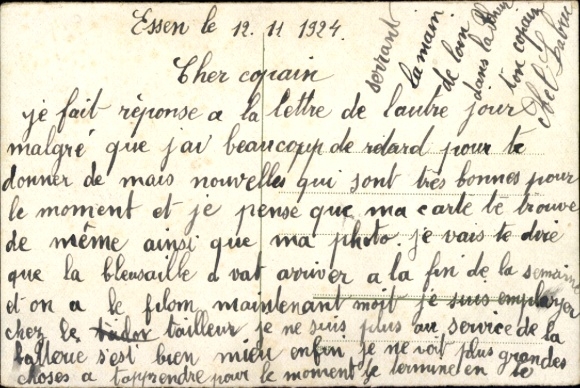 Essen le 12. 11 1924.
Cher copain
je fait réponse a la lettre de lautre jour
malgré que j'ai beaucoup de retard pour te
donner de mais nouvelles qui sont très bonnes pour
le moment et je pense que ma carte te trouve
de même ainsi que ma photo. je vais te dire
que la bleusaille d vat arriver a la fin de la semaine
et on a le filom maintenant moit je suis employer
chez le tailleur je ne suis plus au service de la
batterie s'est bien mieu enfin je ne voit plus grandes
choses a t'apprendre pour le moment je termine en te
serrant
la main
de loin
dans la
ton copain